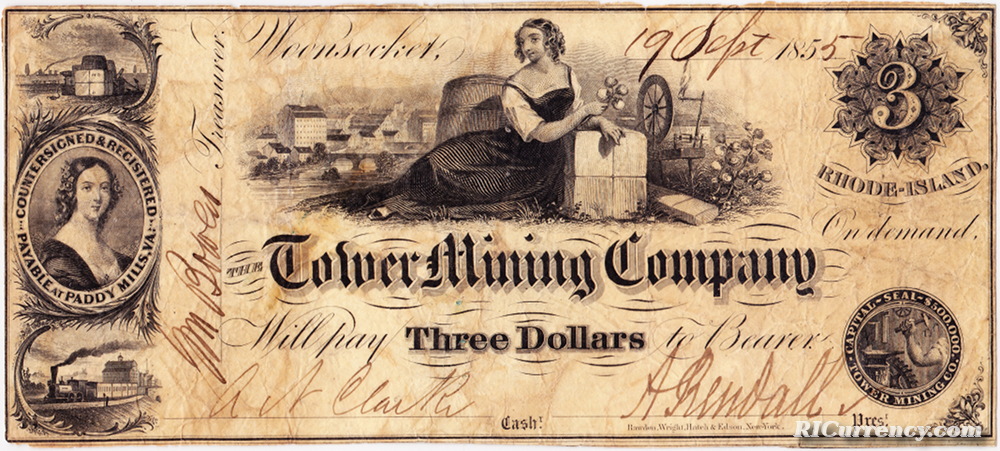 Woonsocket, 19 Sept 1855
3
RHODE-ISLAND.
COUNTERSIGNED & REGISTERED.
PAYABLE AT PADDY MILLS, VA.
Treasurer.
On demand,
THE Tower Mining Company
Will pay Three Dollars to Bearer
CAPITAL-SEAL-$500,000.
TOWER MINING CO.
A N Clark Cash.r
A Rendall Pres.t
Bawden, Wright, Hatch & Edson, New-York.
RICurrency.com